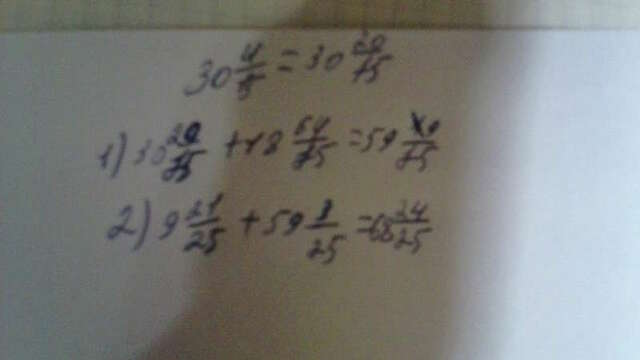 30 4/5 = 30 20/25
1) 30 20/25 + 28 /25 = 59 /25
2) 9 21/25 + 59 3/25 = 68 24/25